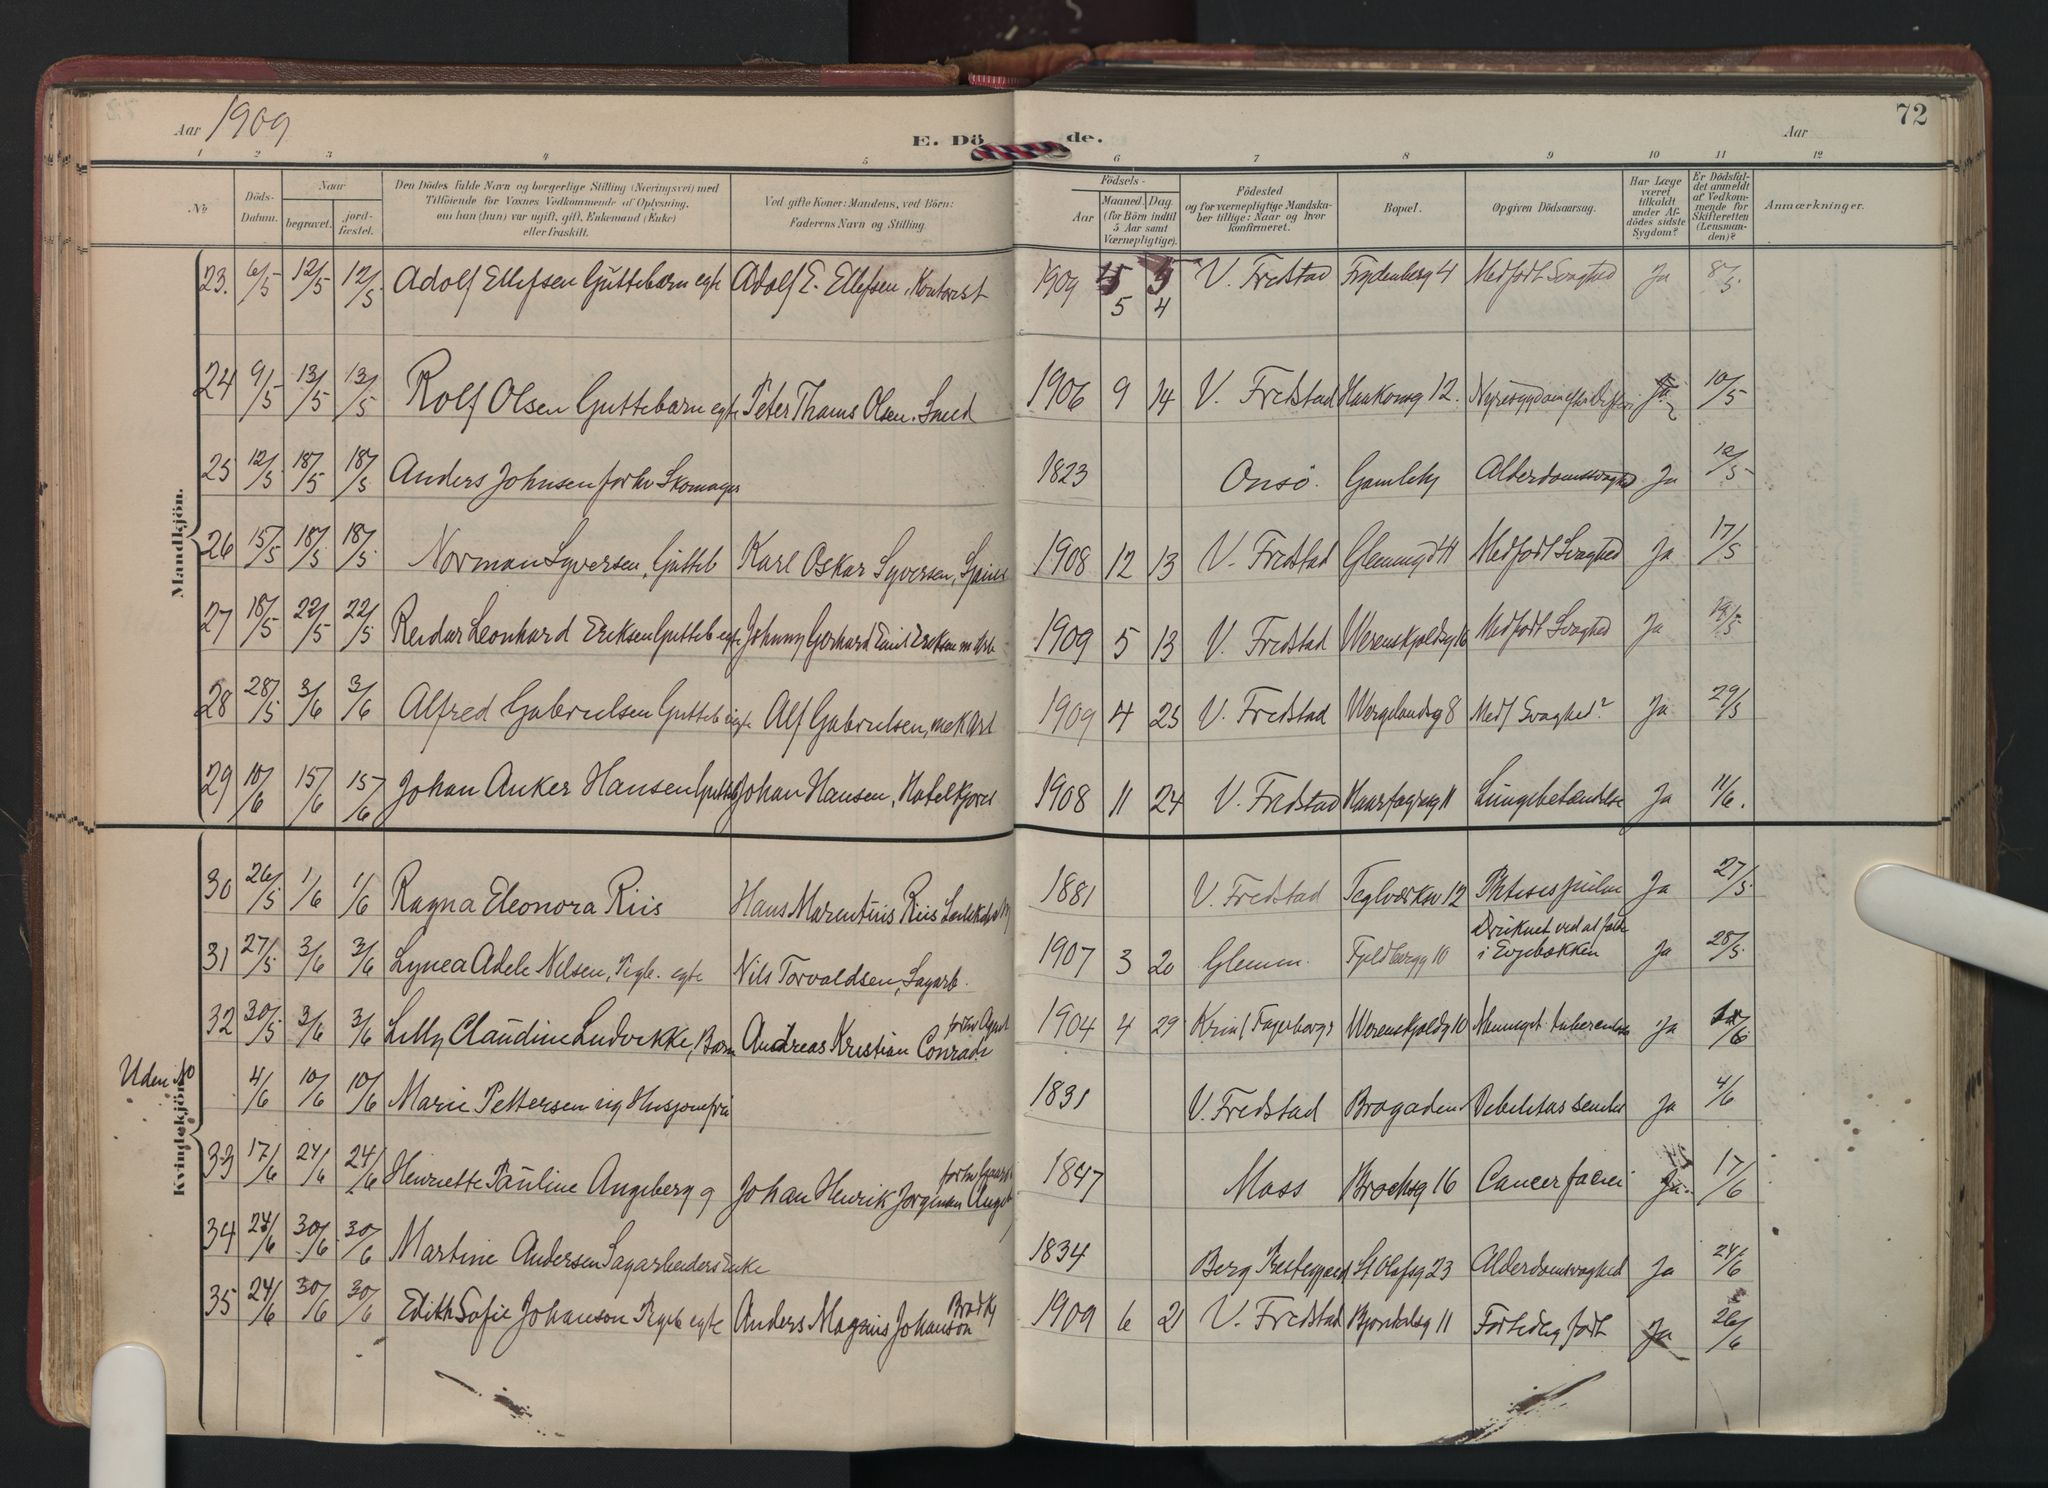 Aar 1909
E. Dö de.
Aar
72
1 2 3 4 5 6 7 8 9 10 11 12
No
Döds-Datum.
Naar
begravet.
jord-fæstet.
Den Dödes fulde Navn og borgerlige Stilling (Næringsvei) med
Tilföiende for Voxnes Vedkommende af Oplysning,
om han (hun) var ugift, gift, Enkemand (Enke)
eller fraskilt.
Ved gifte Koner: Mandens, ved Börn:
Faderens Navn og Stilling.
Födsels-
Aar
Maaned. Dag.
(for Börn indtil
5 Aar samt
Værnepligtige).
Födested
og for værnepligtige Mandska-
ber tillige: Naar og hvor
konfirmeret.
Bopæl.
Opgiven Dödsaarsag.
Har Læge
været
tilkaldt
under Af-
dödes sidste
Sygdom?
Er Dödsfal-
det anmeldt
af Vedkom-
mende for
Skifteretten
(Lensman-
den)?
Anmærkninger.
Mandkjön.
23. 6/5 12/5 12/5 Adolf Ellefsen Guttebarn egte Adolf E. Ellefsen, Kontorist 1909 5 4 V. Fredstad Frydenberg 4 Medfödt Svaghed Ja 8/5
24 9/5 13/5 13/5 Rolf Olsen Guttebarn egte Peter Thams Olsen. Smed 1906 9 14 V. Fredstad Haakonsg 12. Nyresygdom efter Difteri Ja 10/5
25 12/5 18/5 18/5 Anders Johnsen forhv Skomager 1823 Onsö. Gamleby Alderdomssvaghed Ja 12/5
26 15/5 18/5 18/5 Norman Syversen, Gutteb Karl Oskar Syversen, 1908 12 13 V. Fredstad Medfödt Svaghed Ja 17/5
27 18/5 22/5 22/5 Reidar Leonhard Eriksen Gutteb egte Johnny Gerhard Emil Eriksen m Arb 1909 5 13 V. Fredstad Werenskjoldsg 16 Medfödt Svaghed Ja 19/5
28 28/5 3/6 3/6 Alfred Gabrielsen Gutteb egte Alf Gabrielsen, mek Arb 1909 4 25 V. Fredstad Wergelandsg 8 Medf Svaghed? Ja 29/5
29 10/6 15/6 15/6 Johan Anker Hansen Gutteb Johan Hansen, 1908 11 24 V. Fredstad Haarfagresg 11 Lungebetændelse Ja 11/6.
Kvindekjön.
30 26/5 1/6 1/6 Ragna Eleonora Riis Hans Marentius Riis 1881 V. Fredstad Teglværksv 12 Phtisis pulm Ja 27/5
31 27/5 3/6 3/6 Lynea Adele Nilsen, Pigb. egte Nils Torvaldsen, Sagarb. 1907 3 20 Glemm. Fjeldbergg 10 Druknet ved at falde
i Evjebækken Ja 28/5
32 30/5 3/6 3/6 Lilly Claudine Ludovikke, Barn Andreas Kristian Conradi forhv Agent 1904 4 29 Krim f Fagerborgs Werenskjoldsg 10 Meninget tuberculose Ja 1/6
Uden No 4/6 10/6 10/6 Marie Pettersen ug Husjomfru 1831 V. Fredstad Brogaden Debilitas senilis Ja 4/6
33 17/6 24/6 24/6 Henriette Pauline Angeberg g Johan Henrik Jörgensen 1847 Moss Brochsg 16 Cancer faciei Ja. 17/6
34 24/6 30/6 30/6 Martine Andersen Sagarbeiders Enke 1834 Berg Prestegjæld St Olafsg 23 Alderdomsvaghed Ja 24/6
35 24/6 30/6 30/6 Edith Sofie Johanson Pigeb egte Anders Magnus Johanson 1909 6 21 V. Fredstad Bjørndalsg 11 Fortidlig født Ja 26/6